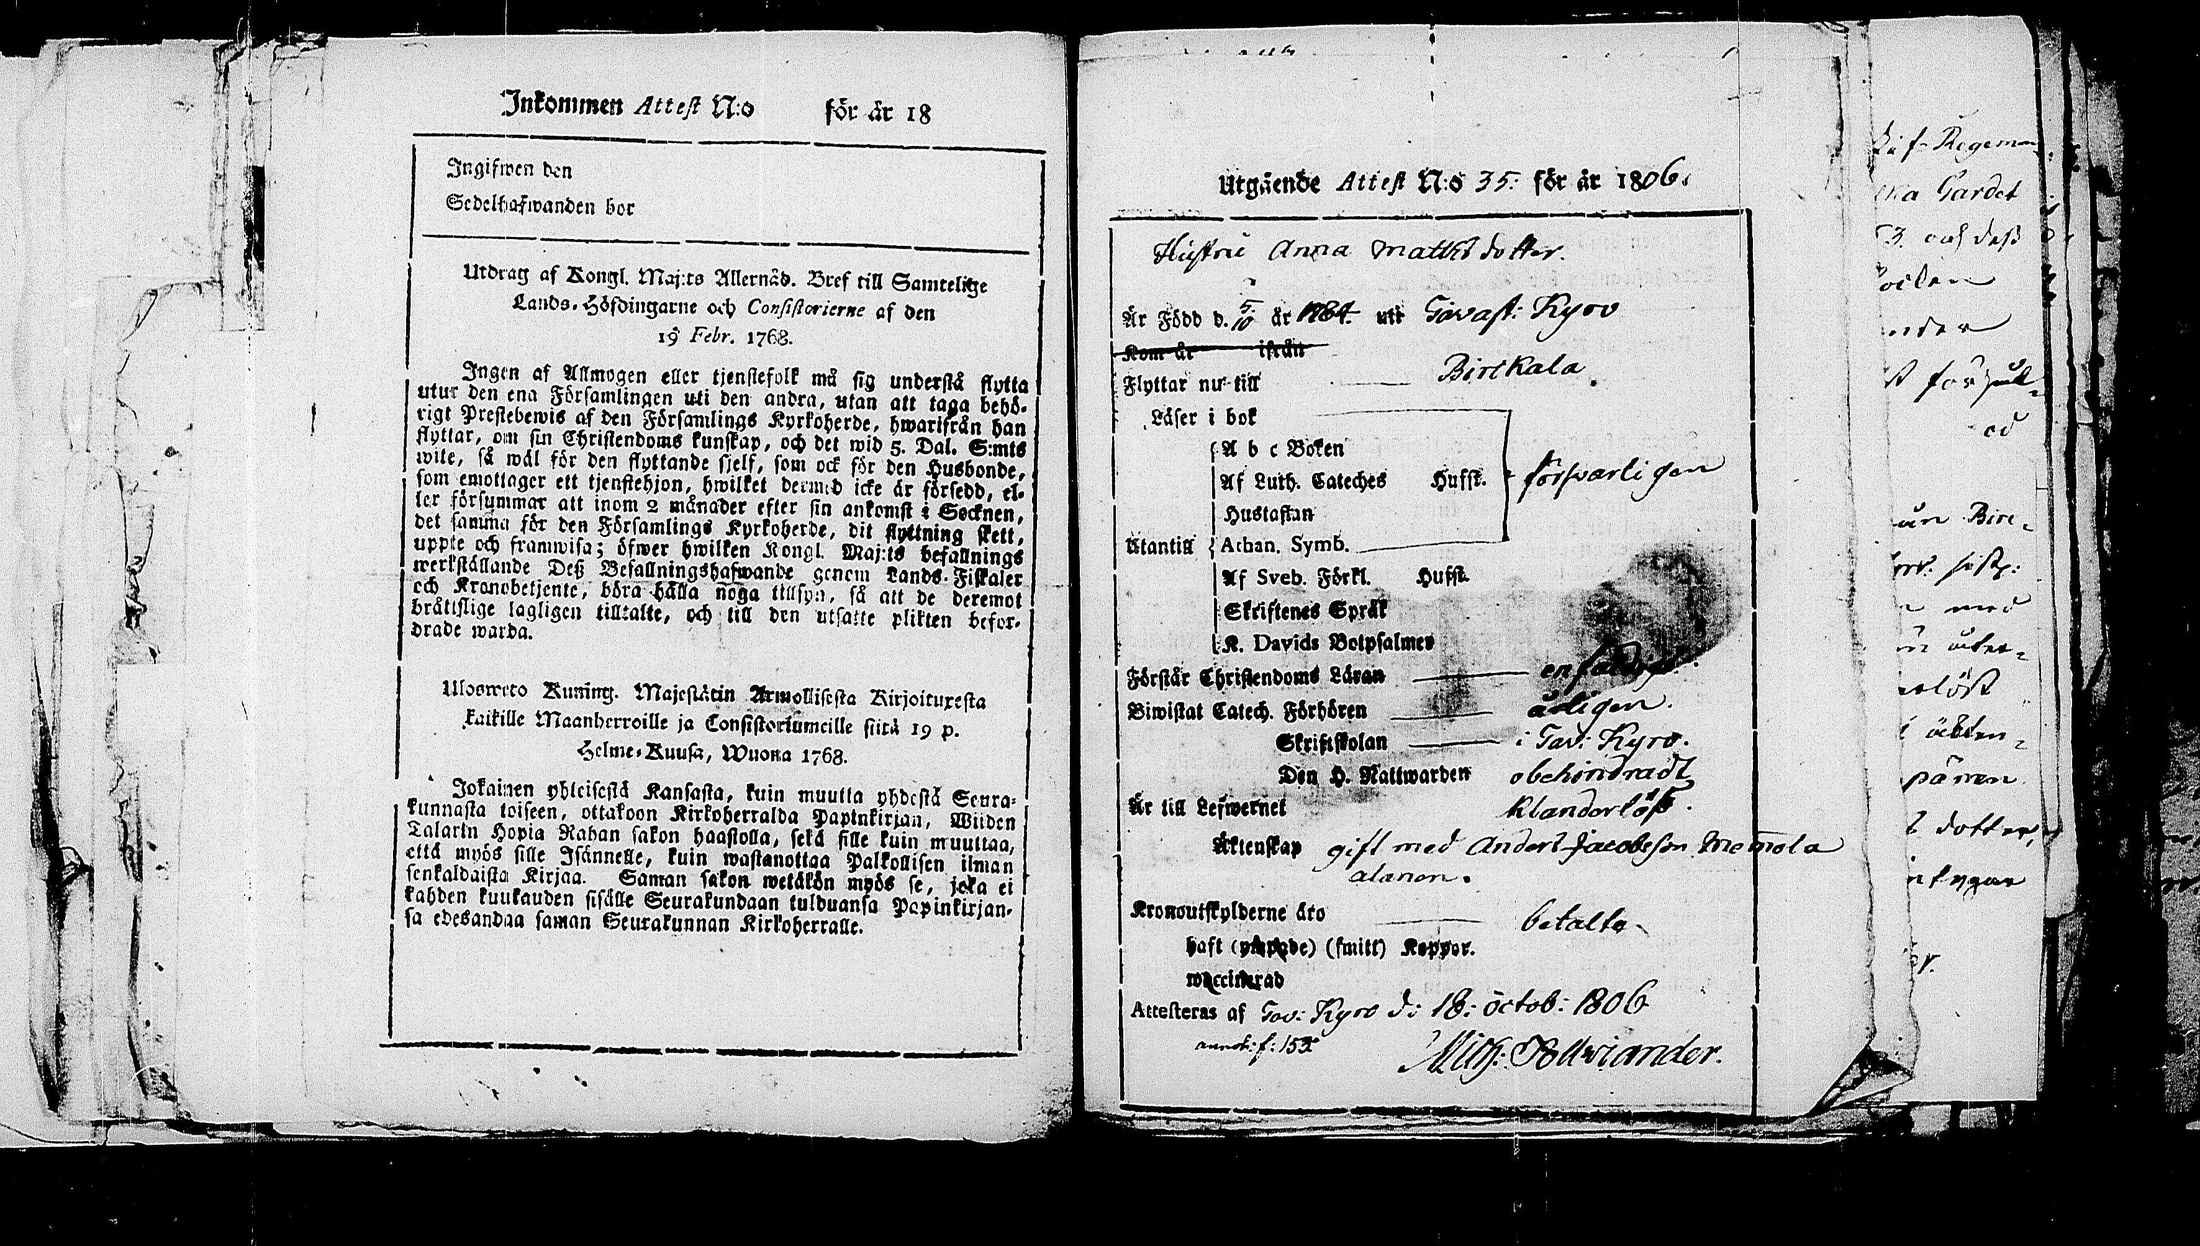 Inkommen Attest N:o för år 18
Ingifwen den
Sedelhafwanden bor
Utdrag af Kongl. Maj:ts Allernåd. Bref till Samtelige
Lands-Höfdingarne och Consistorierne af den
19 Febr. 1768.
Ingen af Allmogen eller tjenstefolk må sig understå flytta
utur den ena Församlingen uti den andra, utan att taga behö-
rigt Prestebewis af den Församlings Kyrkoherde, hwarifrån han
flyttar, om sin Christendoms kunskap, och det wid 5. Dal. S:mts
wite, så wäl för den flyttande sjelf, som ock för den Husbonde,
som emottager ett tjenstehjon, hwilket dermed icke är försedd, el-
ler försummar att inom 2 månader efter sin ankomst i Socknen,
det samma för den Församlings Kyrkoherde, dit flyttning skett,
uppte och framwisa; öfwer hwilken Kongl. Maj:ts befallnings
werkställande Deß Befallningshafwande genom Lands-Fiskaler
och Kronobetjente, böra hålla noga tillsyn, så att de deremot
bråtislige lagligen tilltalte, och till den utsatte plikten befor-
drade warda.
Ulosweto Kuning. Majestätin Armollisesta Kirjoituxesta
kaikille Maanherroille ja Consistoriumeille siitä 19 p.
Helme-Kuusa, Wuona 1768.
Jokainen yhteisestä Kansasta, kuin muutta yhdestä Seura-
kunnasta toiseen, ottakoon Kirkoherralda Papinkirjan, Wiiden
Talarin Hopia Rahan sakon haastolla, sekä sille kuin muuttaa,
että myös sille Isännelle, kuin wastanottaa Palkollisen ilman
senkaldaista Kirjaa. Saman sakon wetäkön myös se, joka ei
kahden kuukauden sisälle Seurakundaan tulduansa Papinkirjan-
sa edesandaa saman Seurakunnan Kirkoherralle.
Utgående Attest N:o 35: för år 1806.
Hustru Anna Matts dotter.
Är Född d. 5/10 år 1784. uti Tavast: Kyro
Kom år ifrån
Flyttar nu till Birkkala.
Läser i bok
A b c Boken
Af Luth. Cateches Hufst. försvarligen
Hustaflan
Utantill Athan. Symb.
Af Sveb. Förkl. Hufst.
Skriftenes Språk
K. Davids Botpsalmer
Förstår Christendoms Läran enfaldigt.
Biwistat Catech. Förhören årligen.
Skriftskolan i Tav: Kyro.
Den H. Nattwarden obehindradt
Är till Lefwernet klanderlöß.
Äktenskap gift med Anders Jacobsson Memola
alanen.
Kronoutskylderne äro betalte
haft (ympade) (smitt) Koppor.
waccinerad
Attesteras af Tav: Kyro d: 18: octob: 1806
f: 153.
Mich: Pollviander.
Regem-
Gardet
3. och deß
ocken
Bire-
med
äkten-
dotter